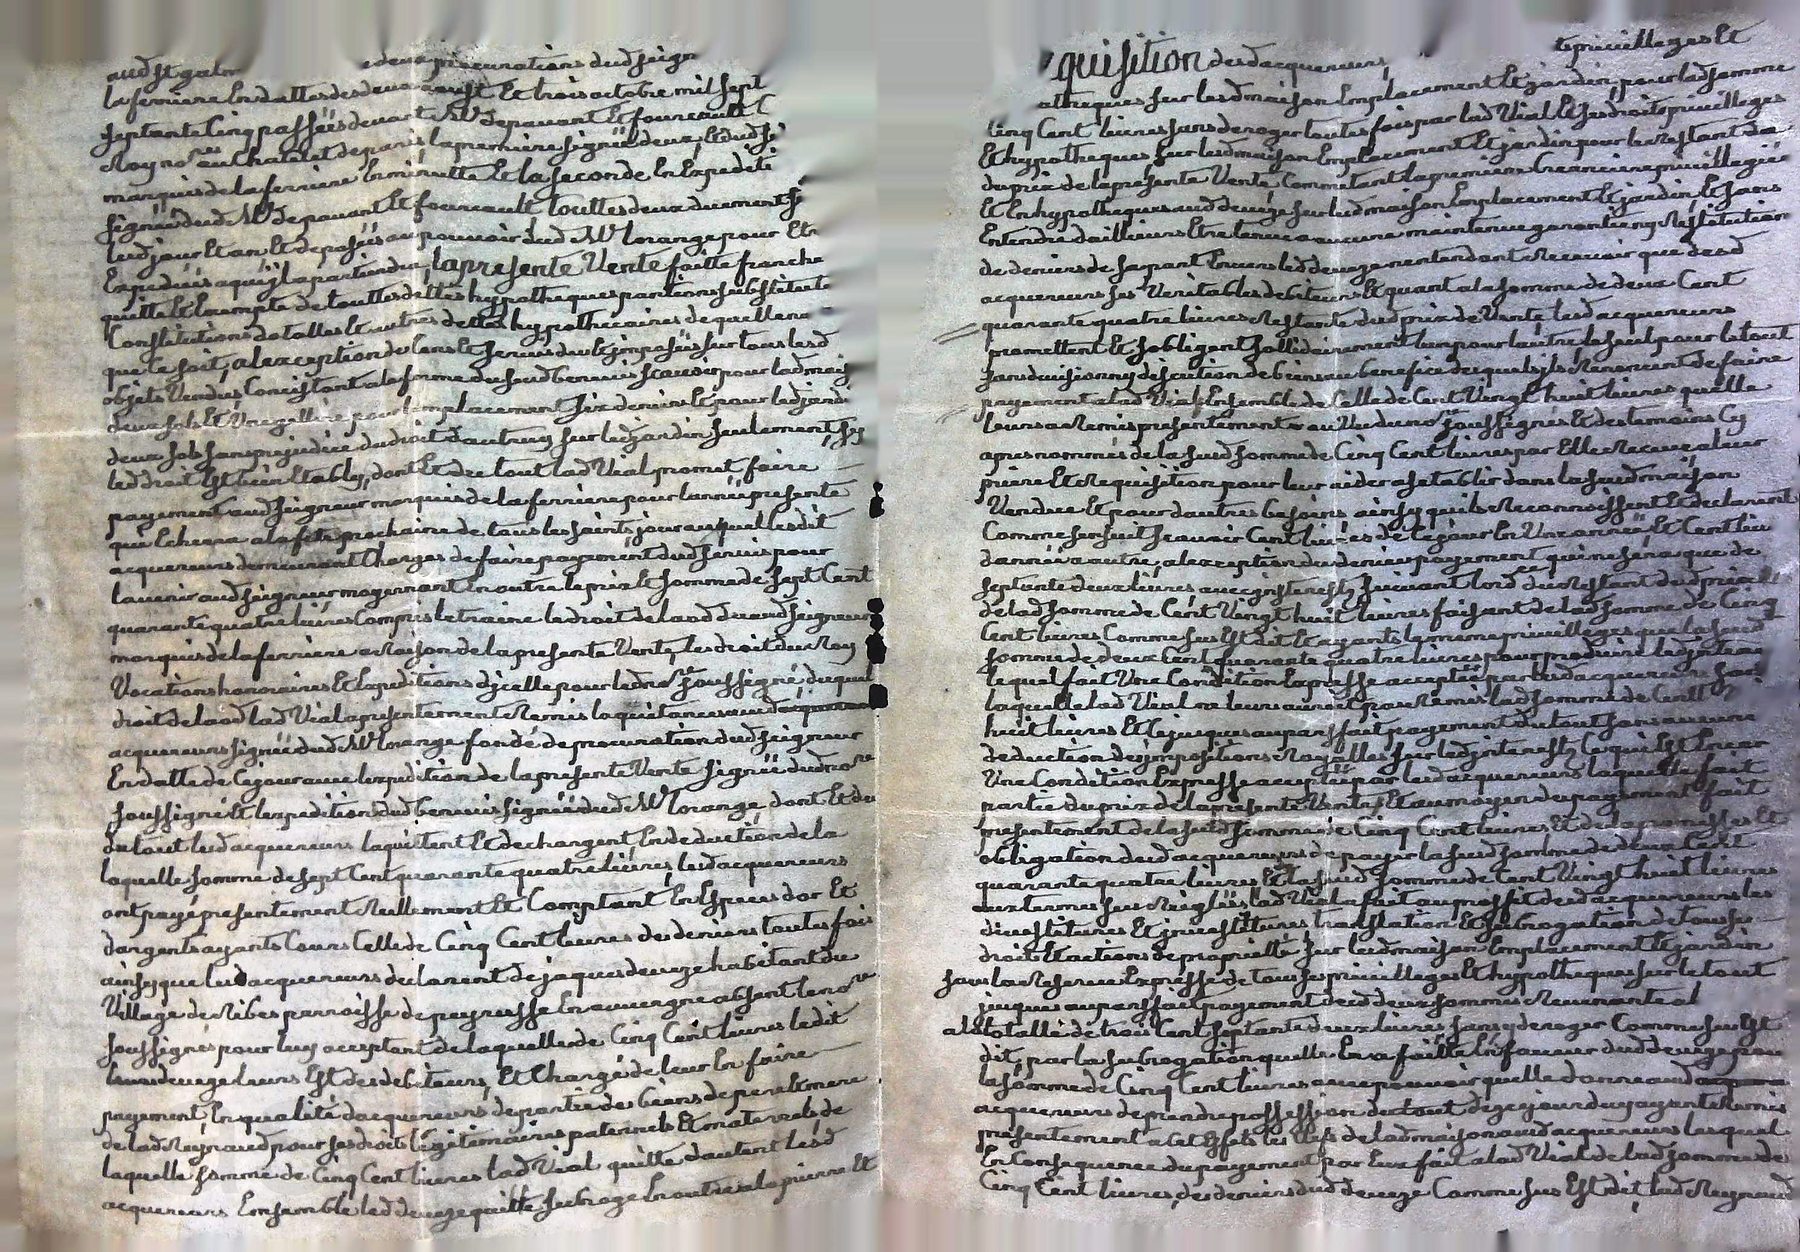 audSt galm e deux procurations dudSeign
laferriere En dattes des deux aoust Et trois octobre mil sept
septante Cinq passées devant Me Depavant Et foureault C
Roy nores au Chatelet de paris lapremiere signée deux, Et dud Sei
marquis de laferriere En minutte Et la seconde En Expediti
signée dud Me Depavant Et foureault touttes deux duement
lesd jour Et an Et deposées au pouvoir dud Me lorange pour Etre
la presente Vente faitte franche
quitte Et Exempte de touttes dettes hypotheques pantions substitutio
Constitutions dotalles Et autres dettes hypothecaires de quelle na
que ce soit, alexception du Cens Et Servis du Et imposés sur tous lesd
objets Vendus Consistant alaforme du susd benevis scavoir pour lad mais
deux sols Et Une gelline pour lemplacement six deniers Et pour led jardi
deux sols sans prejudice du droit dautruy sur led jardin seulement, sy
led droit Est bien Etably, dont Et du tout lad Vial promet faire
payement aud Seigneur marquis de la ferriere pour lannée presente
qui Echerra a la fete prochaine de tous les saints jour auquel lesdit
acquereurs demeurant Charges de faire payement dud Servis pour
lavenir aud Seigneur moyennant En outre le prix Et somme de sept Cent
quarante quatre livres Compris letraine le droit de laod du aud Seigneur
marquis de laferriere a Raison de la presente Vente, les droit du Roy
Vacations honoraires Et Expeditions dicelle pour led nore soussigné duquel
droit de laod lad Vial a presentement Remis la quitance auxd
acquereurs signée dud Me lorange fondé de procuration dud Seigneur
En datte de Ce jour avec lexpedition de la presente Vente signée dud nore
soussigné Et lexpedition dud benevis signée dud Me lorange dont Et du
du tout lesd acquereurs laquittent Et dechargent En deduction de la
laquelle somme de sept Cent quarante quatre livres, lesd acquereurs
ont payé presentement Reellement Et Comptant En Especes dor Et
dargent ayants Cours Celle de Cinq Cent livres des deniers toutes fois
ainsy que lesd acquereurs declarent de jaques deveze habitant du
Village de Ribes parroisse de peyrusse En auvergne absent le nore
soussigné pour luy acceptant de laquelle de Cinq Cent livres ledit
deveze leurs Est des debiteurs, Et Chargé de leur En faire
payement, En qualité dacquereurs de partie des biens de pere Et mere
de lad Reynaud pour ses droits legitimaires paternels Et maternels de
laquelle somme de Cinq Cent livres lad Vial quitte dautant lesd
acquereurs Ensemble led deveze quelle subroge En outre a la priere Et
quisition desd acquereurs t privilleges Et
atheques sur lesd maison Emplacement Et jardin pour lad somme
Cinq Cent livres sans deroger toutes fois par lad Vial Et ses droits privilleges
Et hypotheques sur lesd maison Emplacement Et jardin pour le Restant du
du prix de la presente Vente Comme Etant la premiere Creanciere privillegiée
Et En hypotheques aud deveze sur lesd maison Emplacement Et jardin Et sans
Entendre dailleurs Etre tenue a aucune maintenue garantie ny Restitution
de deniers de sa part Envers led deveze nentendant Recevoir que desd
acquereurs ses Veritables debiteurs Et quant a la somme de deux Cent
quarante quatre livres Restante dud prix de Vente lesd acquereurs
promettent Et sobligent sollidairement lun pour lautre le seul pour le tout
sans division ny discution de biens au benefice desquels ils Renoncent de faire
payement a lad Vial, Ensemble de Celle de Cent Vingt huit livres quelle
leurs a Remis presentement au Vu du nore soussignés Et des temoins Cy
apres nommés de la susd somme de Cinq Cent livres par Elle Recue a leur
priere Et Requisition pour leur aider a setablir dans la susd maison
Vendue Et pour dautres besoins ainsy quils Reconnoissent Et declarent
Comme sensuit scavoir Cent livres de Ce jour En Une année Et Cent livr
dannée a autre, alexception du dernier payement qui ne sera que de
septante deux livres avec interests
de lad somme de Cent Vingt huit livres faisant de lad somme de Cinq
Cent livres Comme sus Est dit Et ayants le meme privilleges que la susd
somme de deux Cent quarante quatre livres pour produire led interest
lequel fait Une Condition Expresse acceptée par lesd acquereurs sans
laquelle lad Vial ne leurs auroit pas Remis lad somme de Cent
huit livres Et Ce jusques au parffait payement du tout sans aucune
deduction dimpositions Royalles sur led interests Ce qui Est Encor
Une Condition Expresse acceptée par lesd acquereurs laquelle fait
partie du prix de la presente Vente, Et au moyen du payement fait
presentement de la susd somme de Cinq Cent livres Et de la promesses Et
obligation desd acquereurs de payer la susd somme de deux Cent
quarante quatre livres Et la susd somme de Cent Vingt huit livres
aux termes sus Reiglés, lad Vial a fait au proffit desd acquereurs les
divestitures Et investitures translation Et subrogation de tous ses
droits Et actions de proprieté sur lesd maison Emplacement Et jardin
sous la Reserve Expresse de tous ses privilleges Et hypotheques sur le tout
jusques au parffait payement desd deux sommes Revenante al
a la totallé de trois Cent septante deux livres sans y deroger Comme sus Est
dit par la subrogation quelle En a faitte En faveur dud deveze pour
la somme de Cinq Cent livres avec pouvoir quelle donne auxd
acquereurs de prendre possession du tout dez ce jour du ayant Remis
presentement a Cet Effets les Clefs de lad maison auxd acquereurs lesquel
En Consequence du payement par Eux fait a lad Vial de lad somme de
Cinq Cent livres, des deniers dud deveze Comme sus Est dit, lad Reynaud